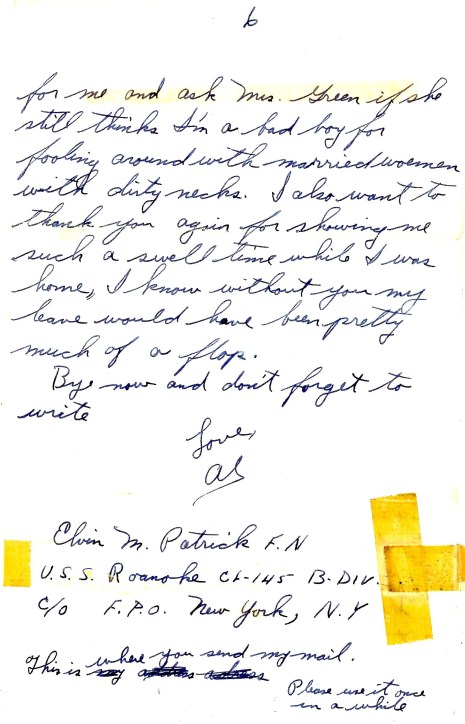 6
for me and ask Mrs. Green if she
still thinks I'm a bad boy for
fooling around with married woemen
with dirty necks. I also want to
thank you again for showing me
such a swell time while I was
home, I know without you my
leave would have been pretty
much of a flop.
Bye now and don't forget to
write
Love,
Al
Elvin M. Patrick F.N
U.S.S. Roanoke CL-145 B-DIV.
C/O F.P.O. New York, N.Y
This is where you send my mail.
Please use it once
in a while